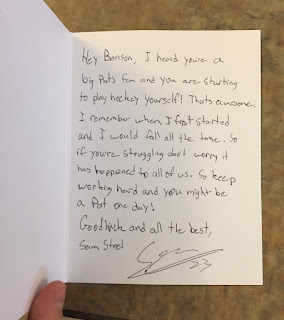 Hey Benson, I heard you're a
big Pats fan and you are starting
to play hockey yourself! Thats awesome,
I remember when I first started
and I would fall all the time. So
if you're struggling don't worry it
has happened to all of us. So keep
working hard and you might be
a Pat one day!
Goodluck and all the best,
Sam Steel
23